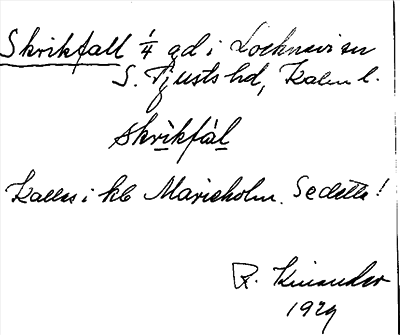 Skrikfall 1/4 gd i Locknevi sn
S. Tjusts hd, Kalm l.
skrikfàl
Kallas i kb Marieholm. Se detta!
R. Kinander
1929